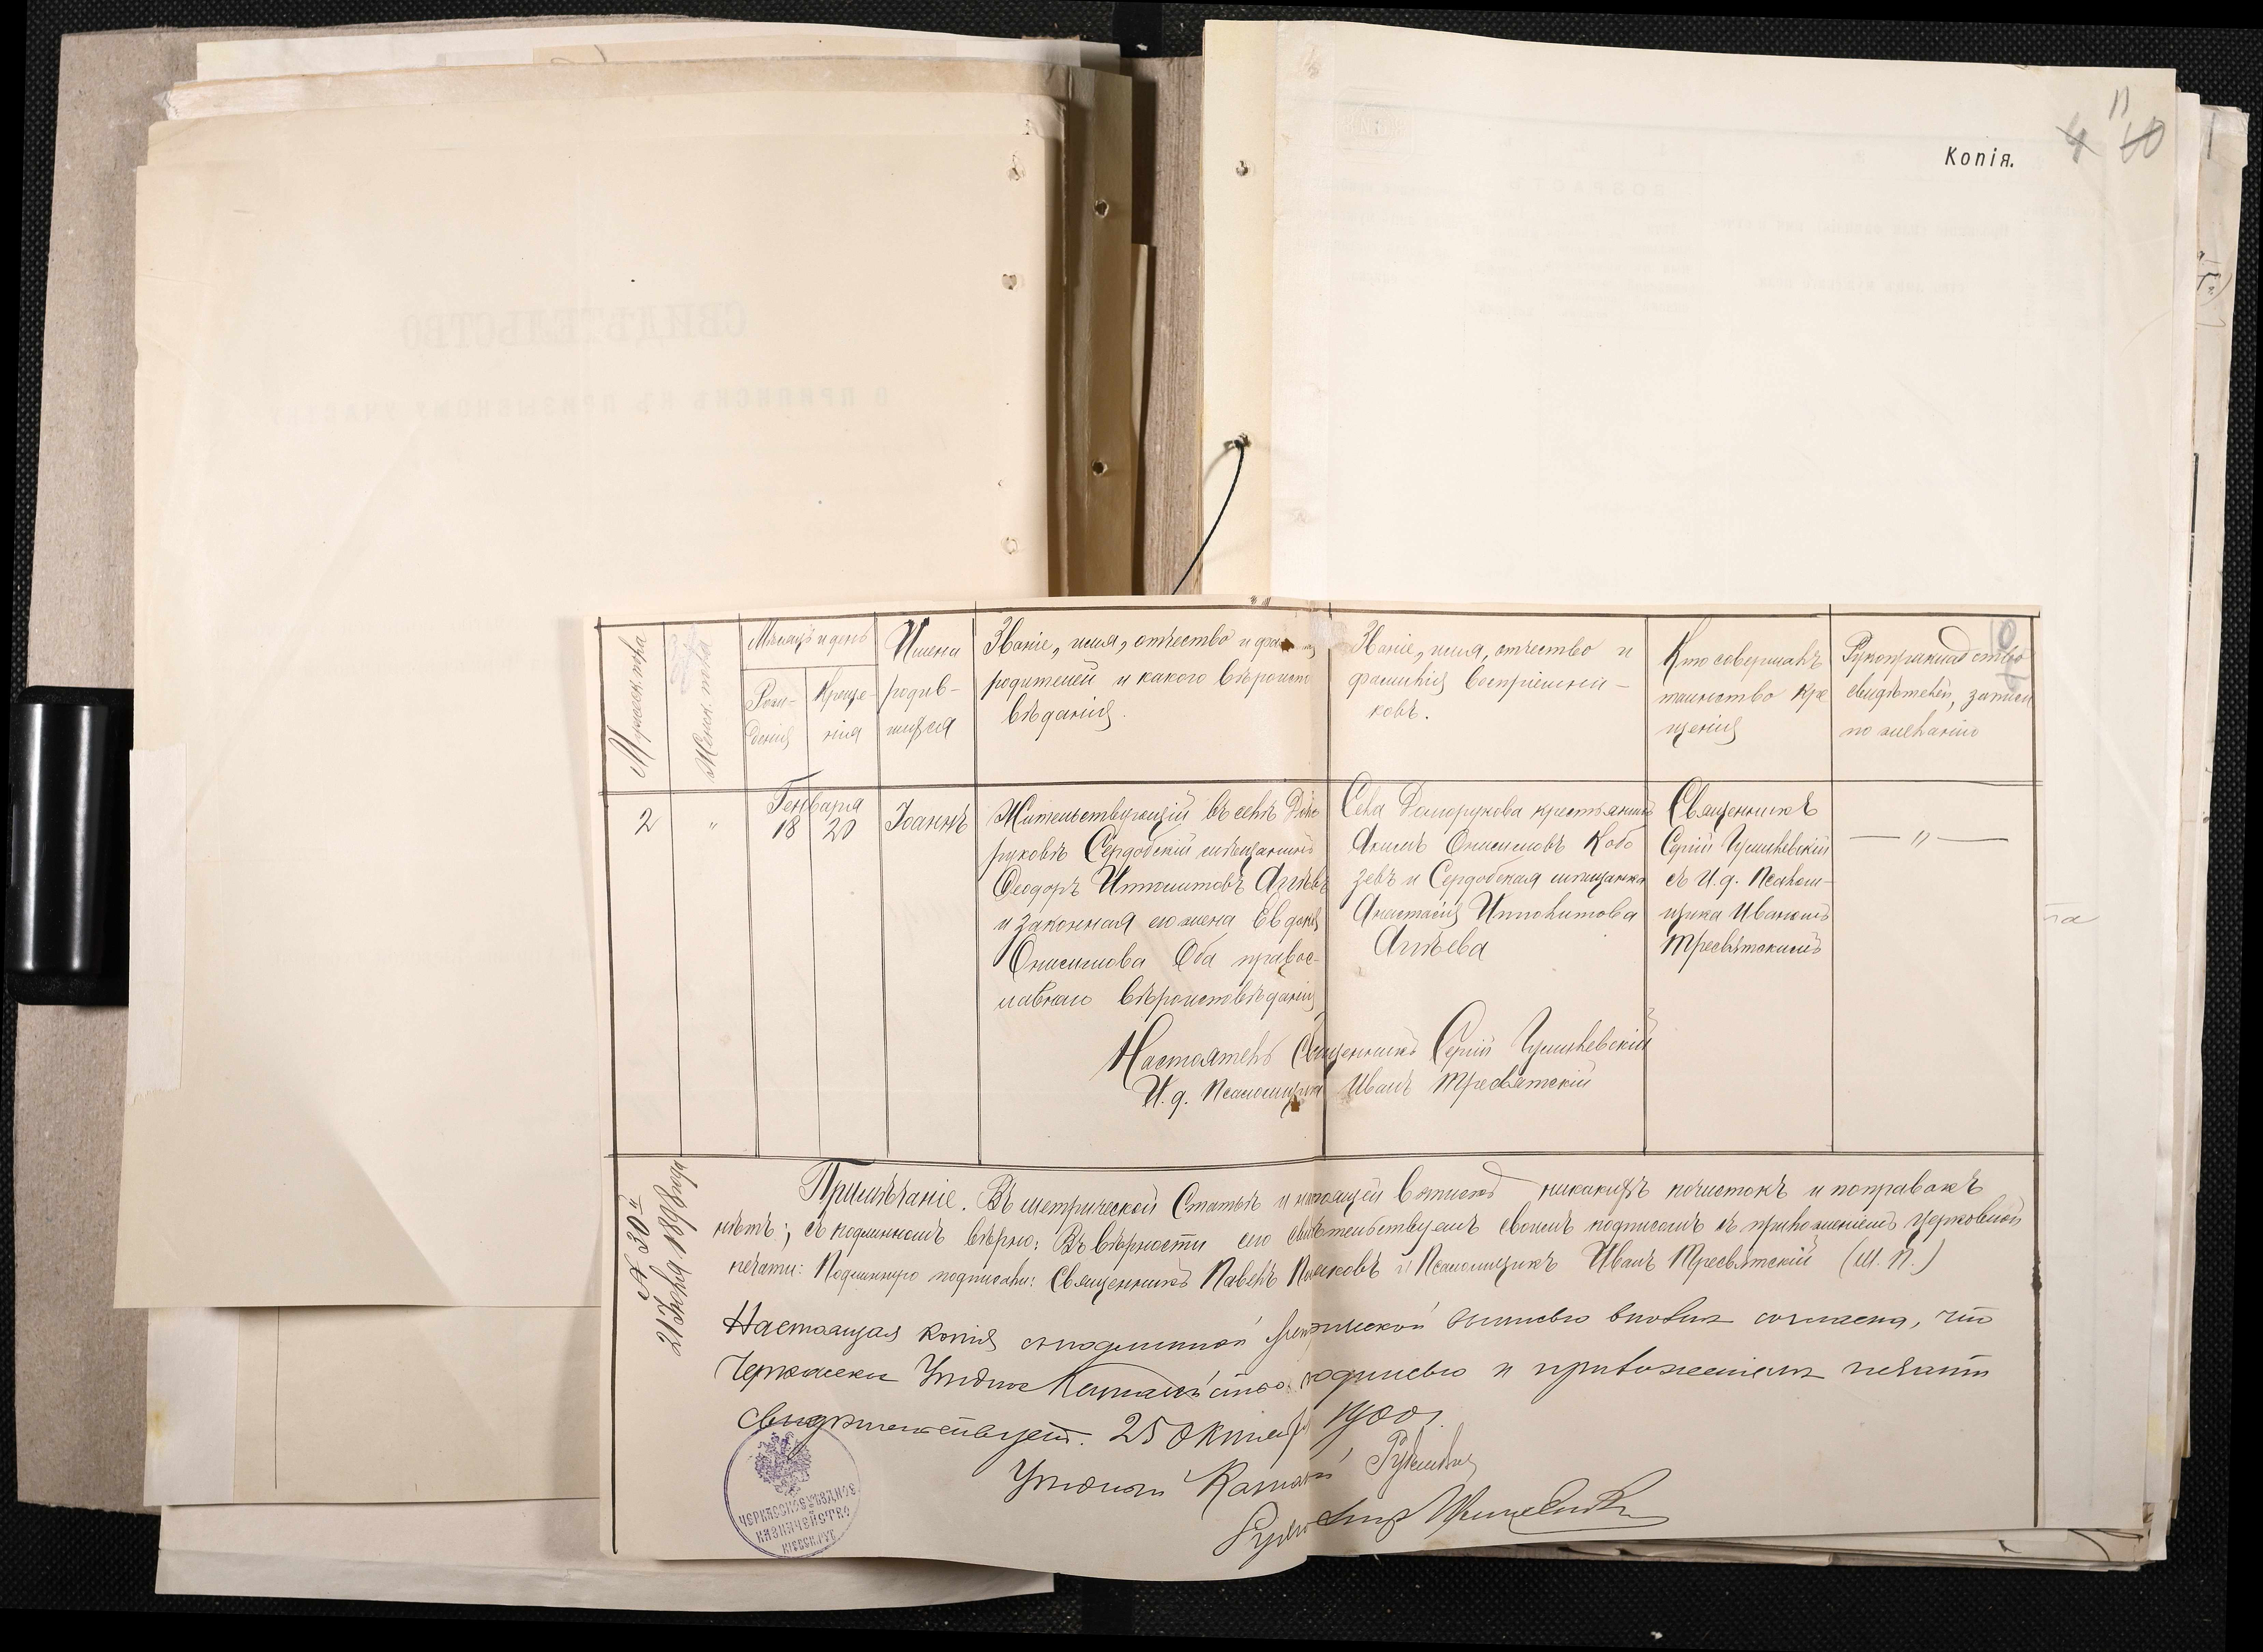 11
4 10
Копія.
Мужеск. пола
Женск. пола
Мѣсяцъ и день
Рож-
денія
Креще-
нія
Имена
родив-
шихся
Званіе, имя, отчество и
родителей и какого вѣроиспо
вѣданія.
Званіе, имя, отчество и
фамилія воспріемни-
ковъ.
Кто совершалъ
таинство кре
щенія
Рукоприкладство
свидѣтелей, записи
по желанію
2
"
Генваря
18 20
Іоаннъ
Жительствующій въ селѣ Долго
руковѣ Сердобскій мѣщанинъ
Ѳеодоръ Ипполитовъ Агѣевъ
и законная его жена Евдокія
Онисимова Оба правос-
лавнаго вѣроисповѣданія
Села Долгорукова крестьянинъ
Акимъ Онисимовъ Кобо
зевъ и Сердобская мѣщанка
Анастасія Ипполитова
Агѣева
Священникъ
Сергій
съ И. д. Псалом-
щика Иваномъ
Тресвятскимъ
— " —
Настоятель Священникъ Сергій
И. д. Псаломщика Иванъ Тресвятскій
№ 30й
21 Іюня 1898 года
Примѣчаніе. Въ метрической Статьѣ и настоящей выписи никакихъ почистокъ и поправокъ
нѣтъ; съ подлиннымъ вѣрно: Въ вѣрности сего свидѣтельствуемъ своимъ подписомъ съ приложеніемъ церковной
печати: Подлинную подписали: Священникъ Павелъ и Псаломщикъ Иванъ Тресвятскій (М. П.)
Настоящая копія съ подлинной метрической выписью вполнѣ согласна, что
Черкасское Уѣздное Казначейство подписью и приложеніемъ печати
свидѣтельствуетъ. 25 Октября 1900 г.
Уѣздный Казначей
ЧЕРКАССКОЕ УѢЗДНОЕ
КАЗНАЧЕЙСТВО
КІЕВСК. ГУБ.
СВИДѢТЕЛЬСТВО
О ПРИПИСКѢ КЪ ПРИЗЫВНОМУ УЧАСТКУ